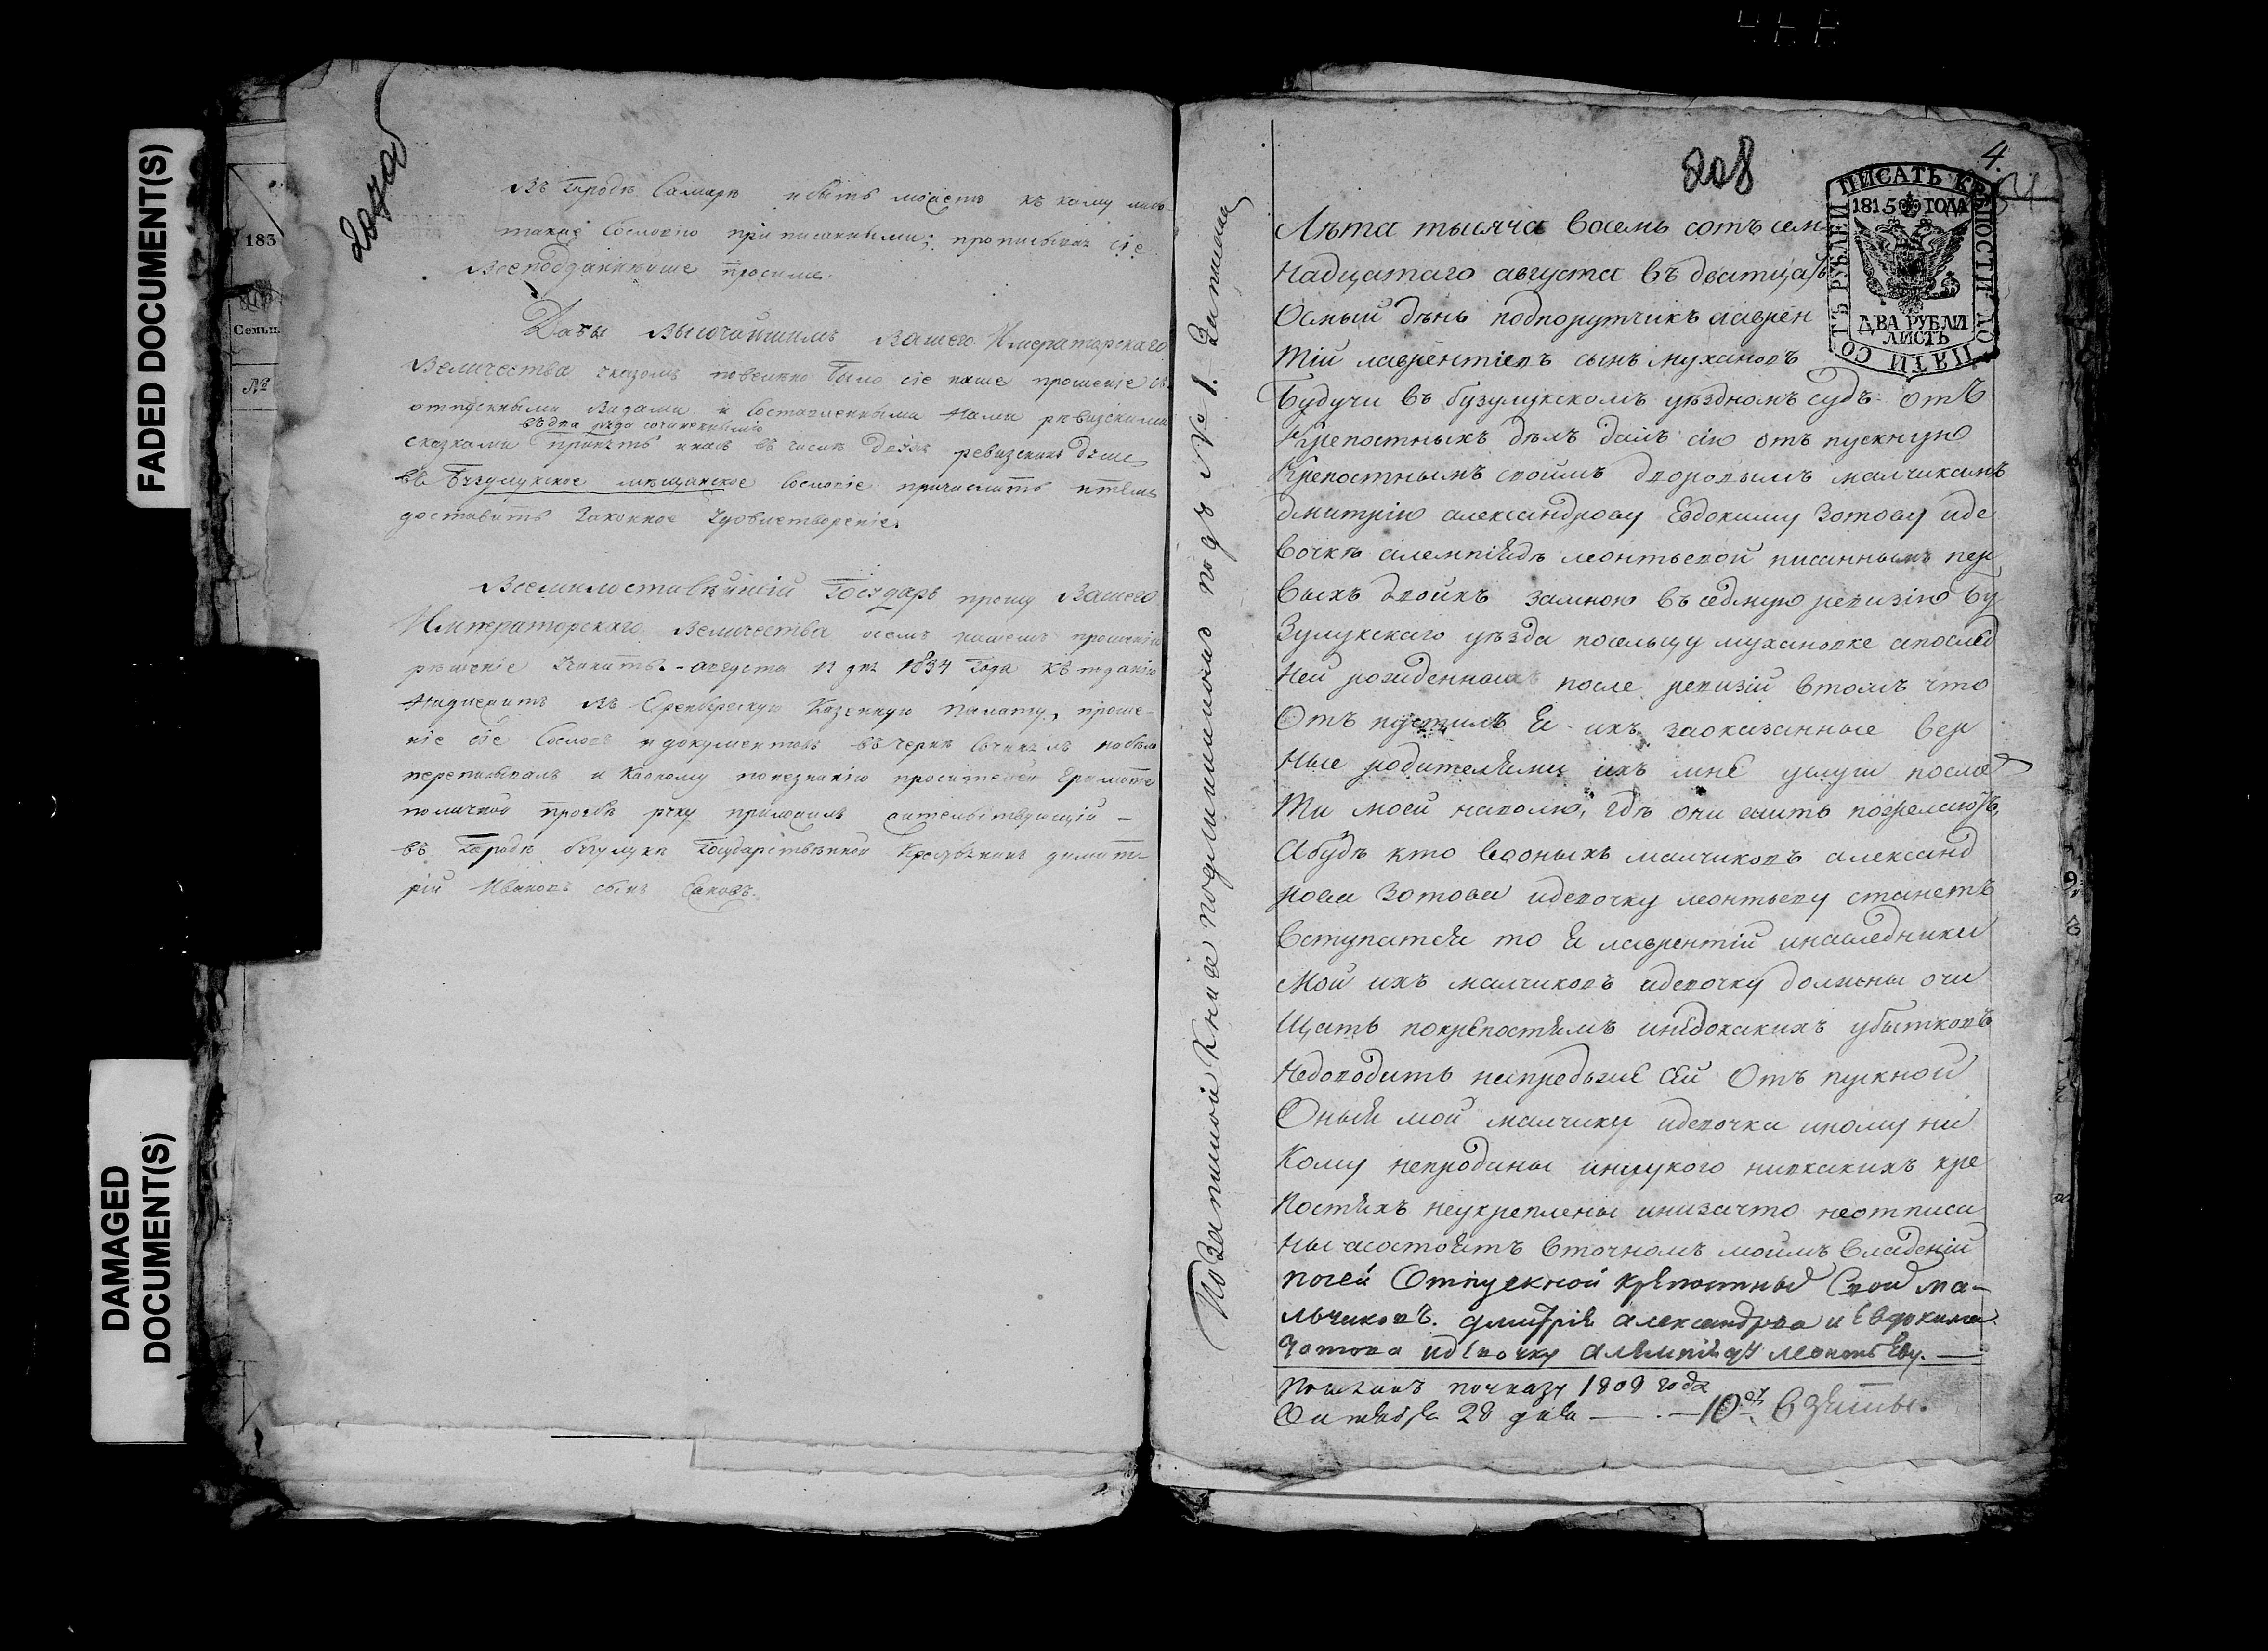 FADED DOCUMENT(S)
DAMAGED
DOCUMENT(S)
183
№
въ городѣ Самарѣ и быть можетъ къ кому либо
такое Сословію приписанными; прописывая сіе
Всеподданнѣйше просимъ.
Дабы Высочайшимъ Вашего Императорскаго
Величества указомъ повелѣно было сіе наше прошеніе съ
отпускными видами и составленными нами ревизскими
въ два ряда сочиненными
сказками принять и насъ въ число душъ ревизскихъ
въ Бузулукское мѣщанское сословіе причислить и тѣмъ
доставить законное удовлетвореніе.
Всемилостивѣйшій Государь прошу Вашего
Императорскаго Величества о семъ нашемъ прошеніи
рѣшеніе учинить. - августа 11 дня 1834 года къ поданію
надлежитъ въ Оренбургскую Казенную Палату, проше-
ніе сіе со словъ и документовъ въ чернѣ сочинялъ набѣло
переписывалъ и къ оному по незнанію просителей грамоте
по личной прозбѣ руку приложилъ жительствующій -
въ городѣ Бузулукѣ Государственной Крестьянинъ Димит-
рій Ивановъ сынъ
По Записной Книге подлинною подъ № 1. Записана
208
4.
ПИСАТЬ КРѢПОСТИ ДО ПЯТИ СОТЪ РУБЛЕЙ
1815 ГОДА
ДВА РУБЛИ
ЛИСТЪ
Лѣта тысяча восемь сотъ сем
надцатаго августа въ дватцать
Осмый день подпорутчикъ лаврен
тій лаврентіевъ сынъ мухановъ
Будучи въ бузулукскомъ уѣздномъ судѣ отъ
Крепостныхъ дѣлъ далъ сію отъ пускную
Крепостнымъ своимъ дворовымъ малчикамъ
дмитрію александрову Евдокиму Зотову иде
вочкѣ алемпіядѣ леонтьевой писаннымъ пер
выхъ двоихъ замною въ седмую ревизію бу
Зулукскаго уѣзда посельцу мухановке апослед
ней рожденная после ревизіи втомъ что
Отъ пустилъ я ихъ заоказанные вер
ные родителями ихъ мнѣ услуги после
ти моей наволю, гдѣ они жить пожелаютъ,
Абудѣ кто вооныхъ малчиковъ александ
рова Зотова идевочку леонтьеву станетъ
вступатся то я лаврентій инаследники
мои ихъ малчиковъ идевочку должны очи
щать покрепостямъ инидокакихъ убытковъ
недоводить напредьже сей Отъ пускной
Оныя мои малчики идевочка иному ни
кому непроданы иниукого нивкакихъ кре
постяхъ неукреплены инизачто неотписа
ны асостоятъ вточномъ моимъ владеніи
посей Отпускной крепостныя свои ма-
льчиковъ. дмитрія александрова и Евдокима
Зотова идевочку алемпіяду леонтьеву. —
Пошлинъ поуказу 1809 года
Октября 28 дня — . — 10 ру. взяты.